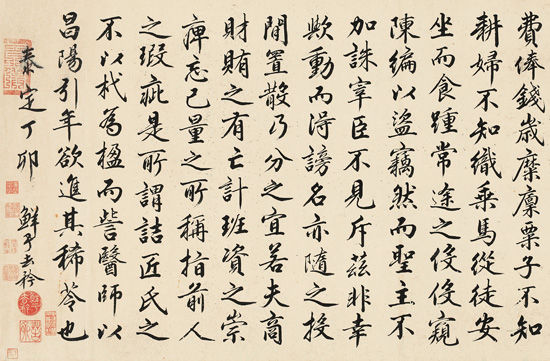 費俸錢歲糜廩粟子不知
耕婦不知織乘馬從徒安
坐而食踵常途之役役窺
陳編以盜竊然而聖主不
加誅宰臣不見斥茲非幸
歟動而得謗名亦隨之投
閒置散乃分之宜若夫商
財賄之有亡計班資之崇
庳忘己量之所稱指前人
之瑕疵是所謂詰匠氏之
不以杙為楹而訾醫師以
昌陽引年欲進其稀苓也
泰定丁卯 鮮于去矜